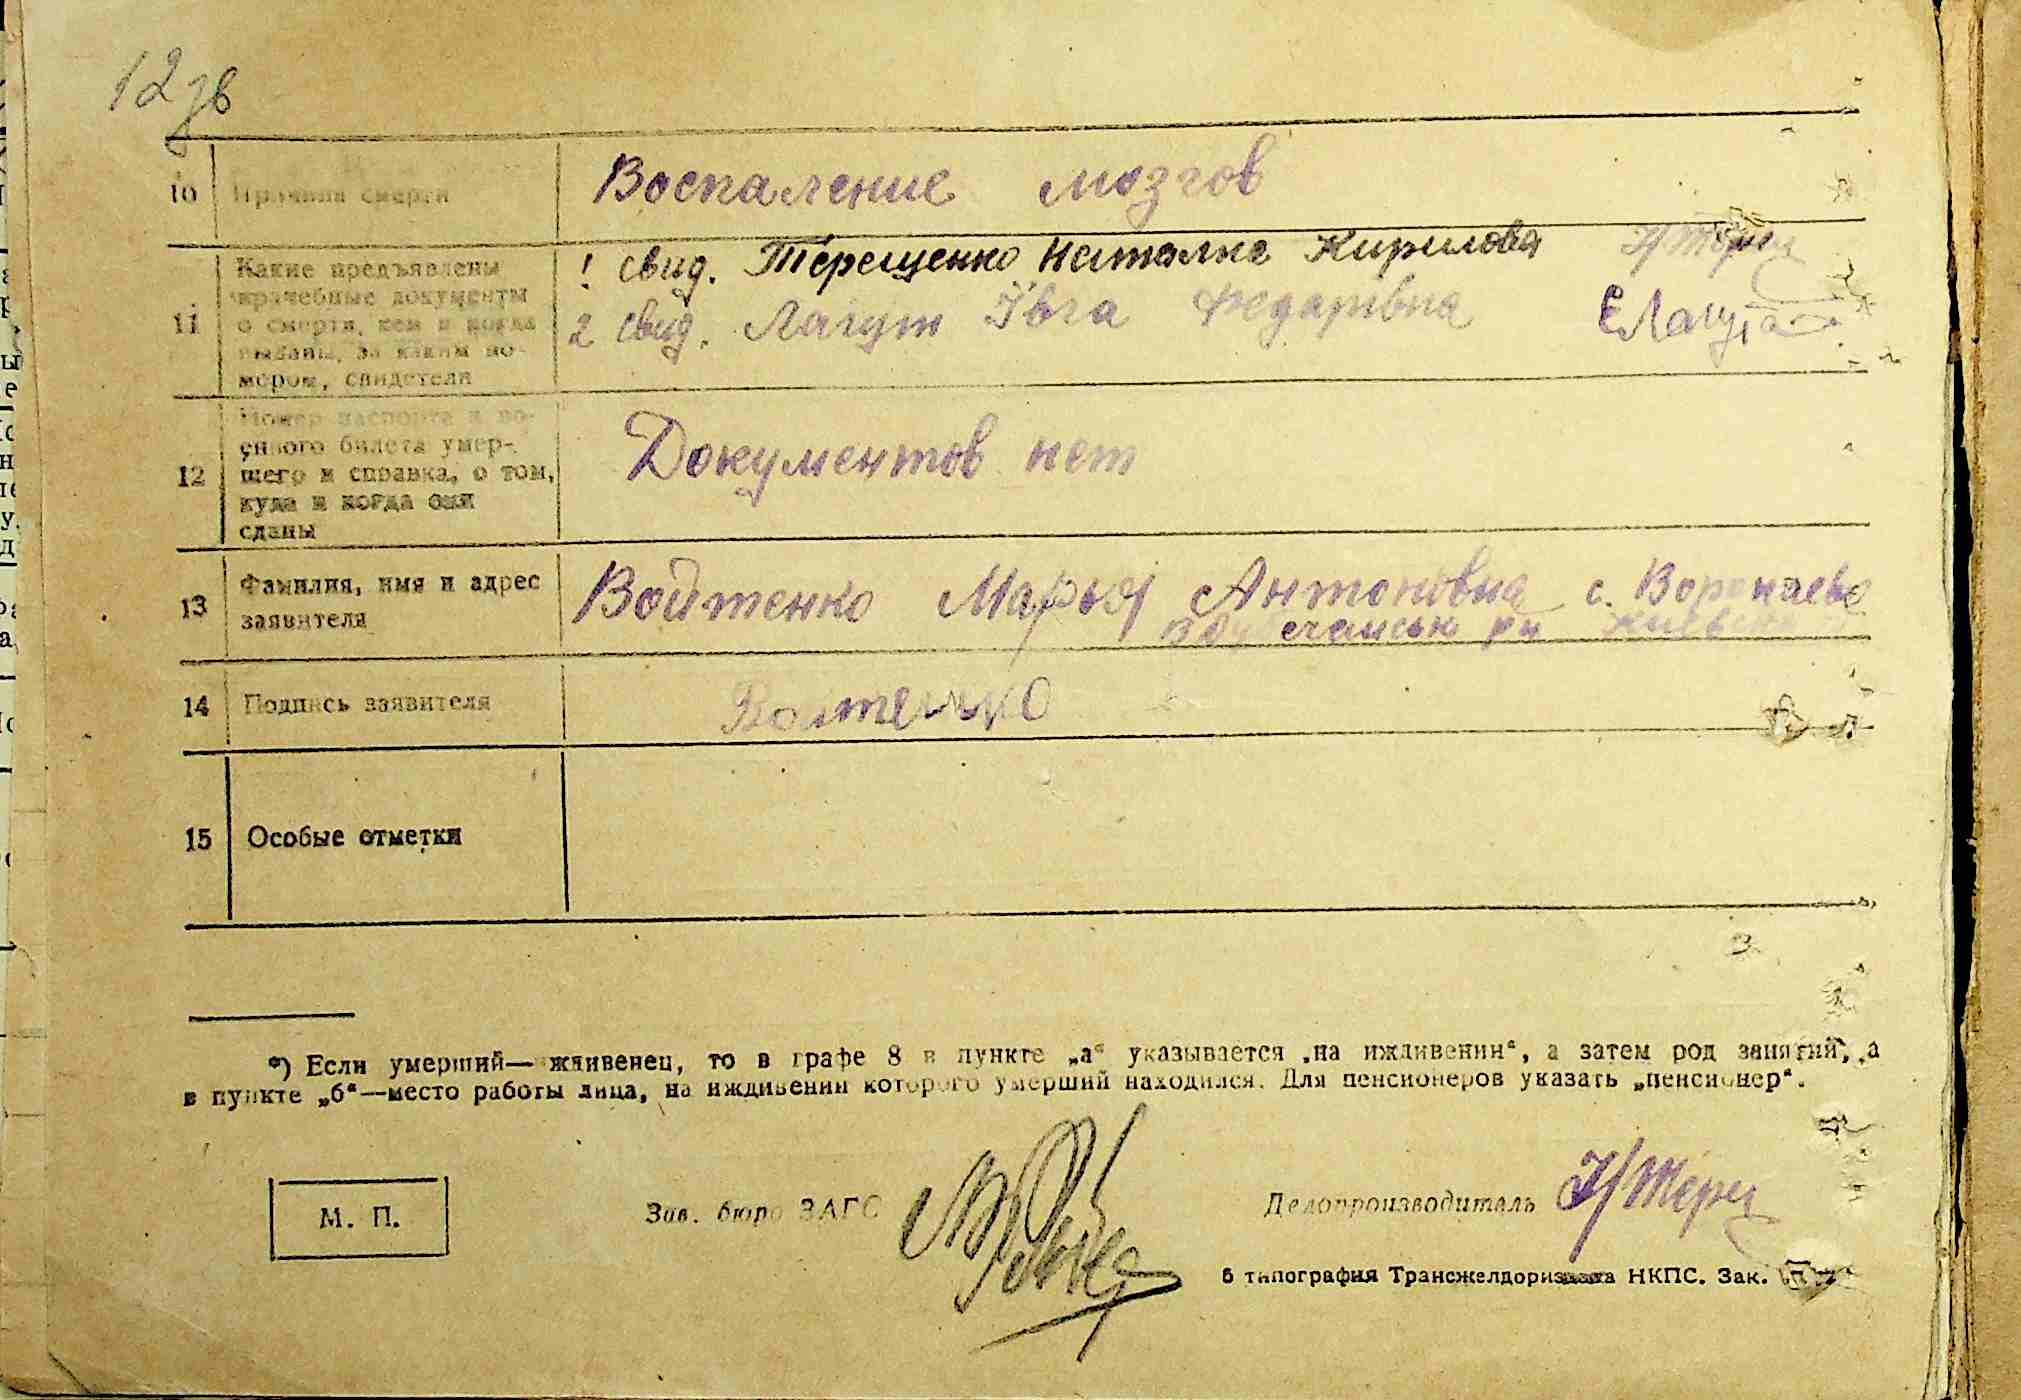 12 зв
10 Причина смерти Воспаление мозгов
11 Какие предъявлены
врачебные документы
о смерти, кем и когда
выданы, за каким но-
мером, свидетели
1 свид. Терещенко Наталка Кирилова Н/Терещ
2 свид. Лагут Ївга Федарівна ЄЛагута
12 Номер паспорта и во-
енного билета умер-
шего и справка, о том,
куда и когда они
сданы
Документов нет
13 Фамилия, имя и адрес
заявителя
Войтенко Марья Антоновна с. Воропаево
рн
14 Подпись заявителя Войтенко
15 Особые отметки
*) Если умерший— иждивенец, то в графе 8 в пункте „а“ указывается „на иждивении“, а затем род занятий, а
в пункте „б“—место работы лица, на иждивении которого умерший находился. Для пенсионеров указать „пенсионер“.
М. П.
Зав. бюро ЗАГС
Делопроизводитель Н/Терещ
6 типография Трансжелдориздата НКПС. Зак.